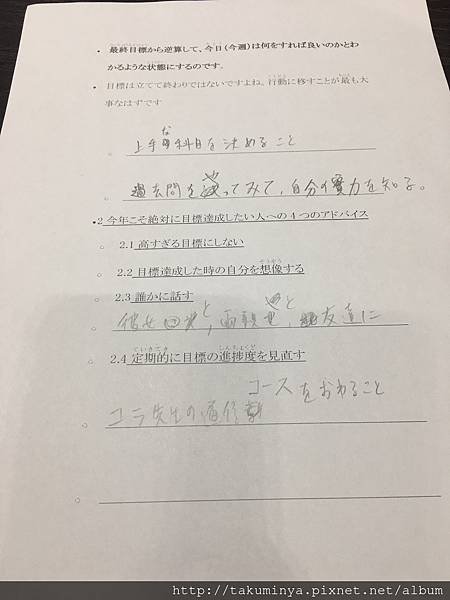 最終目標から逆算して、今日(今週)は何をすれば良いのかとわ
かるような状態にするのです。
目標は立てて終わりではないですよね、行動に移すことが最も大
事なはずです
上手な科目を決めること
過去問をやってみて、自分の実力を知る。
2 今年こそ絶対に目標達成したい人への4つのアドバイス
2.1 高すぎる目標にしない
2.2 目標達成した時の自分を想像する
2.3 誰かに話す
と, 両親やと, 友達に
2.4 定期的に目標の進捗度を見直す
コースをおわること
コラ先生の通信
http://takuminya.pixnet.net/album